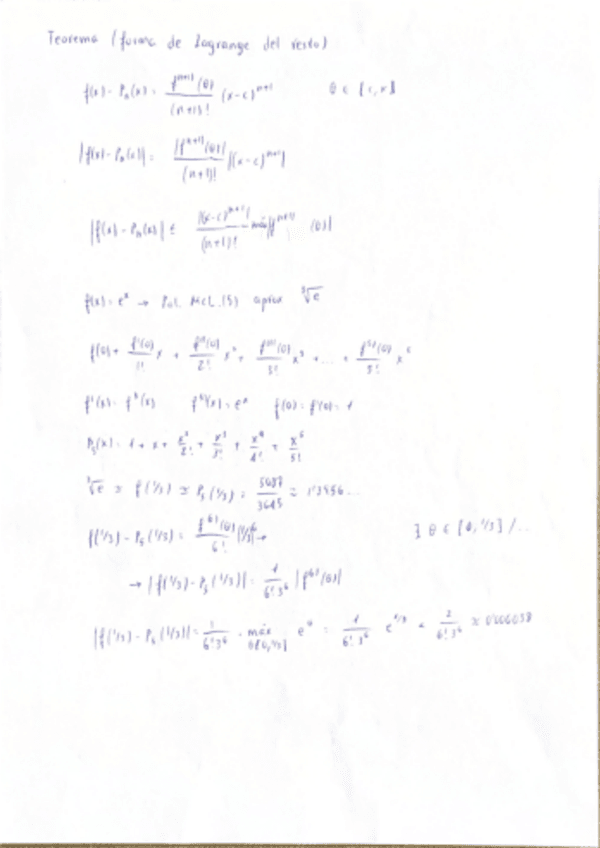 Teorema (forma de Lagrange del resto)
f(x) - Pₙ(x) = f⁽ⁿ⁺¹⁾(θ)/(n+1)! (x-c)ⁿ⁺¹ θ ∈ [c,x]
|f(x) - Pₙ(x)| = |f⁽ⁿ⁺¹⁾(θ)|/(n+1)! |(x-c)ⁿ⁺¹|
|f(x) - Pₙ(x)| ≤ |(x-c)ⁿ⁺¹|/(n+1)! máx|f⁽ⁿ⁺¹⁾(θ)|
f(x) = eˣ → Pol. McL.(5) aprox ∛e
f(0) + f'(0)/1! x + f''(0)/2! x² + f'''(0)/3! x³ + ... + f⁵⁾(0)/5! x⁵
f(0) = f'(0) = 1
P₅(x) = 1 + x + x²/2! + x³/3! + x⁴/4! + x⁵/5!
∛e ≃ f(1/3) ≃ P₅(1/3) = ≃ 1'3956...
f(1/3) - P₅(1/3) = f⁶⁾(θ)/6! →
∃ θ ∈ [0, 1/3] / ...
→ |f(1/3) - P₅(1/3)| = 1/6!3⁶ |f⁶⁾(θ)|
|f(1/3) - P₅(1/3)| = 1/6!3⁶ · máx θ∈[0,1/3] e^θ = 1/6!3⁶ e^1/3 < 2/6!3⁶ ≃